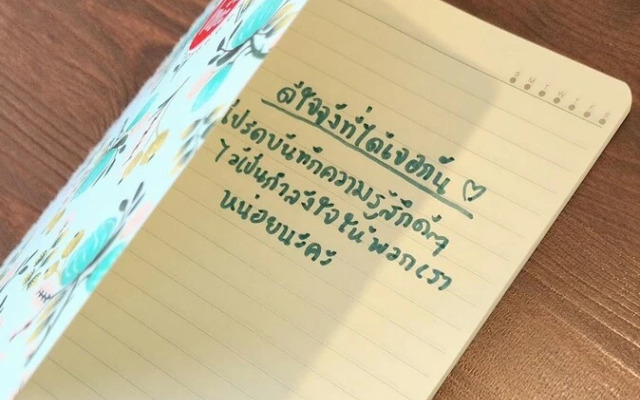 ดีใจจังที่ได้เจอกัน ♡
โปรดบันทึกความรู้สึกดีๆ
ไว้เป็นกำลังใจให้พวกเรา
หน่อยนะคะ
S M T W T F S